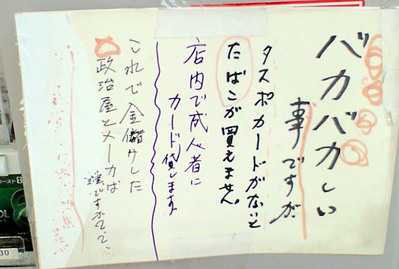 バカバカしい
事ですが
タスポカードがないと
たばこが買えません。
店内で成人者に
カード貸します。
これで金儲けした
政治屋とメーカは
誰ですか？？、